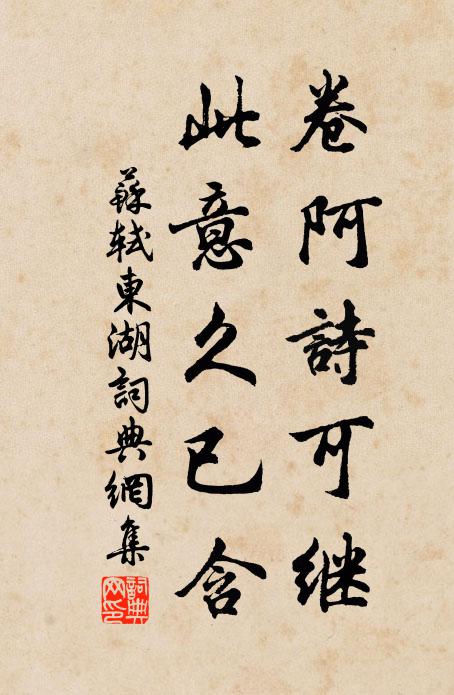 卷阿詩可継
此意久已含
蘇軾東湖詞典網集
詞典网印